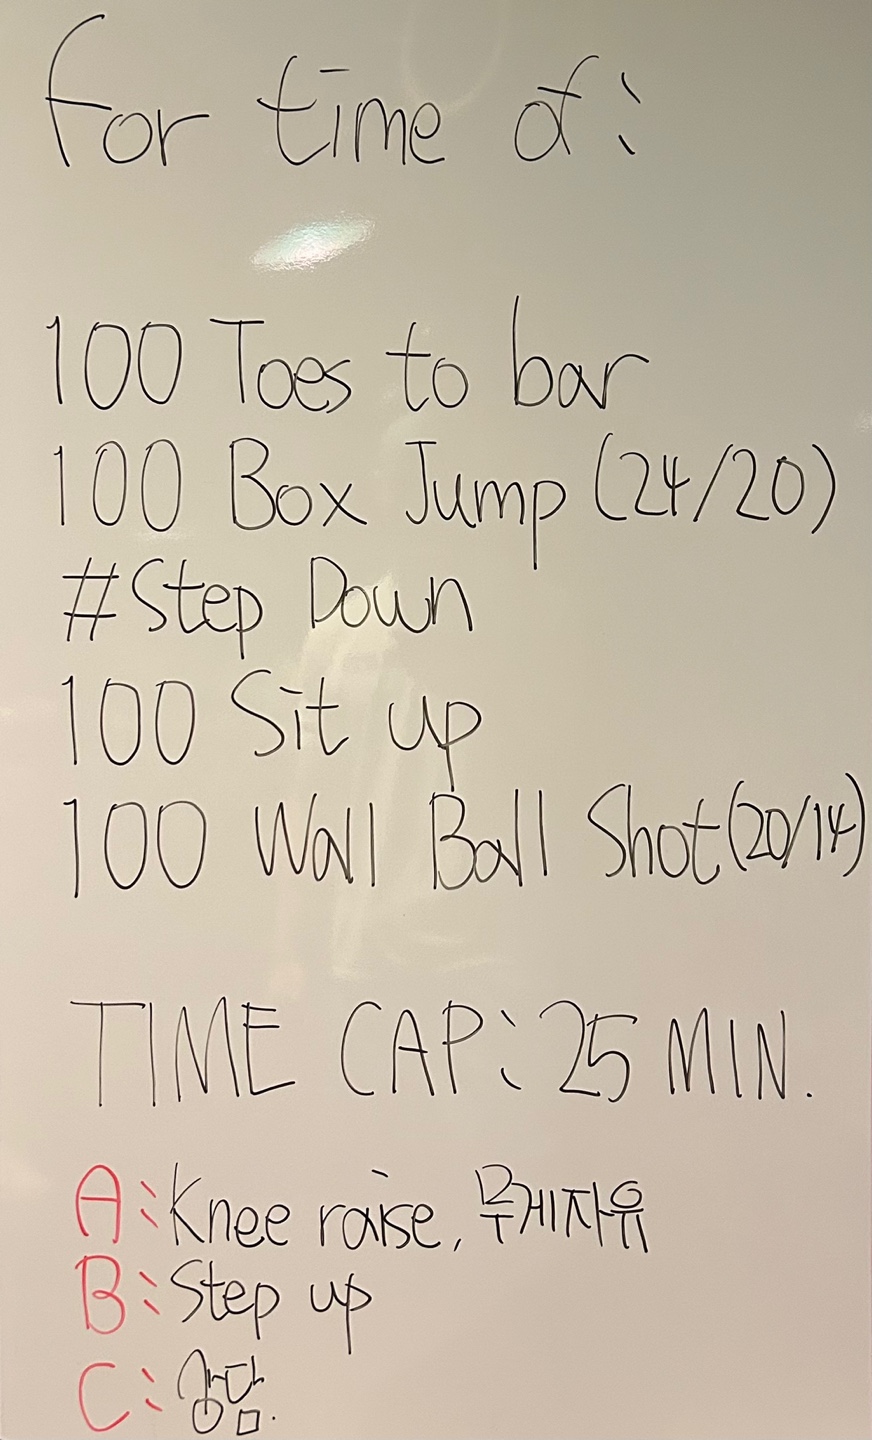 For time of:
100 Toes to bar
100 Box Jump (24/20)
#Step Down
100 Sit up
100 Wall Ball Shot(20/14)
TIME CAP: 25 MIN.
A: Knee raise, 무게자유
B: Step up
C: 상담.